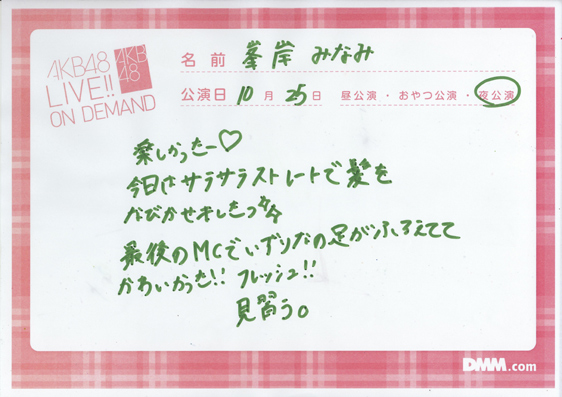 AKB48
LIVE!!
ON DEMAND
AKB
48
名前 峯岸 みなみ
公演日 10月 25日 昼公演・おやつ公演・夜公演
楽しかったー♡
今日はサラサラストレートで髪を
なびかせましたっ☆☆
最後のMCでいずりなの足がふるえてて
かわいかった!! フレッシュ!!
見習う。
DMM.com